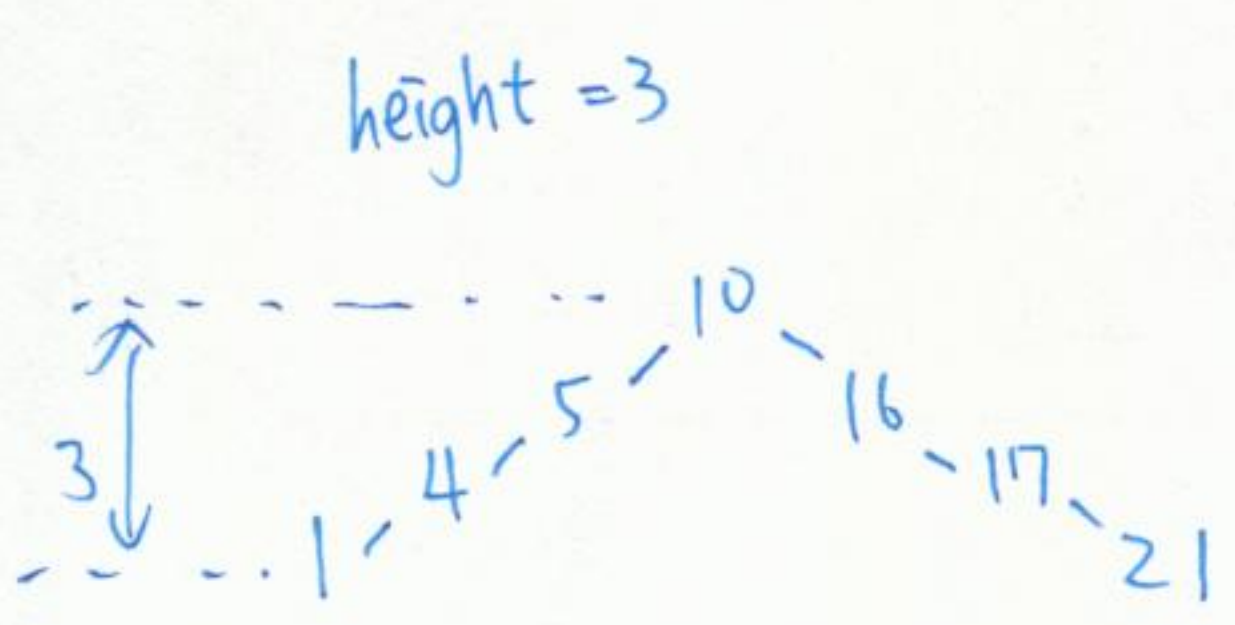 height = 3
10
5
16
4
17
3
1
21